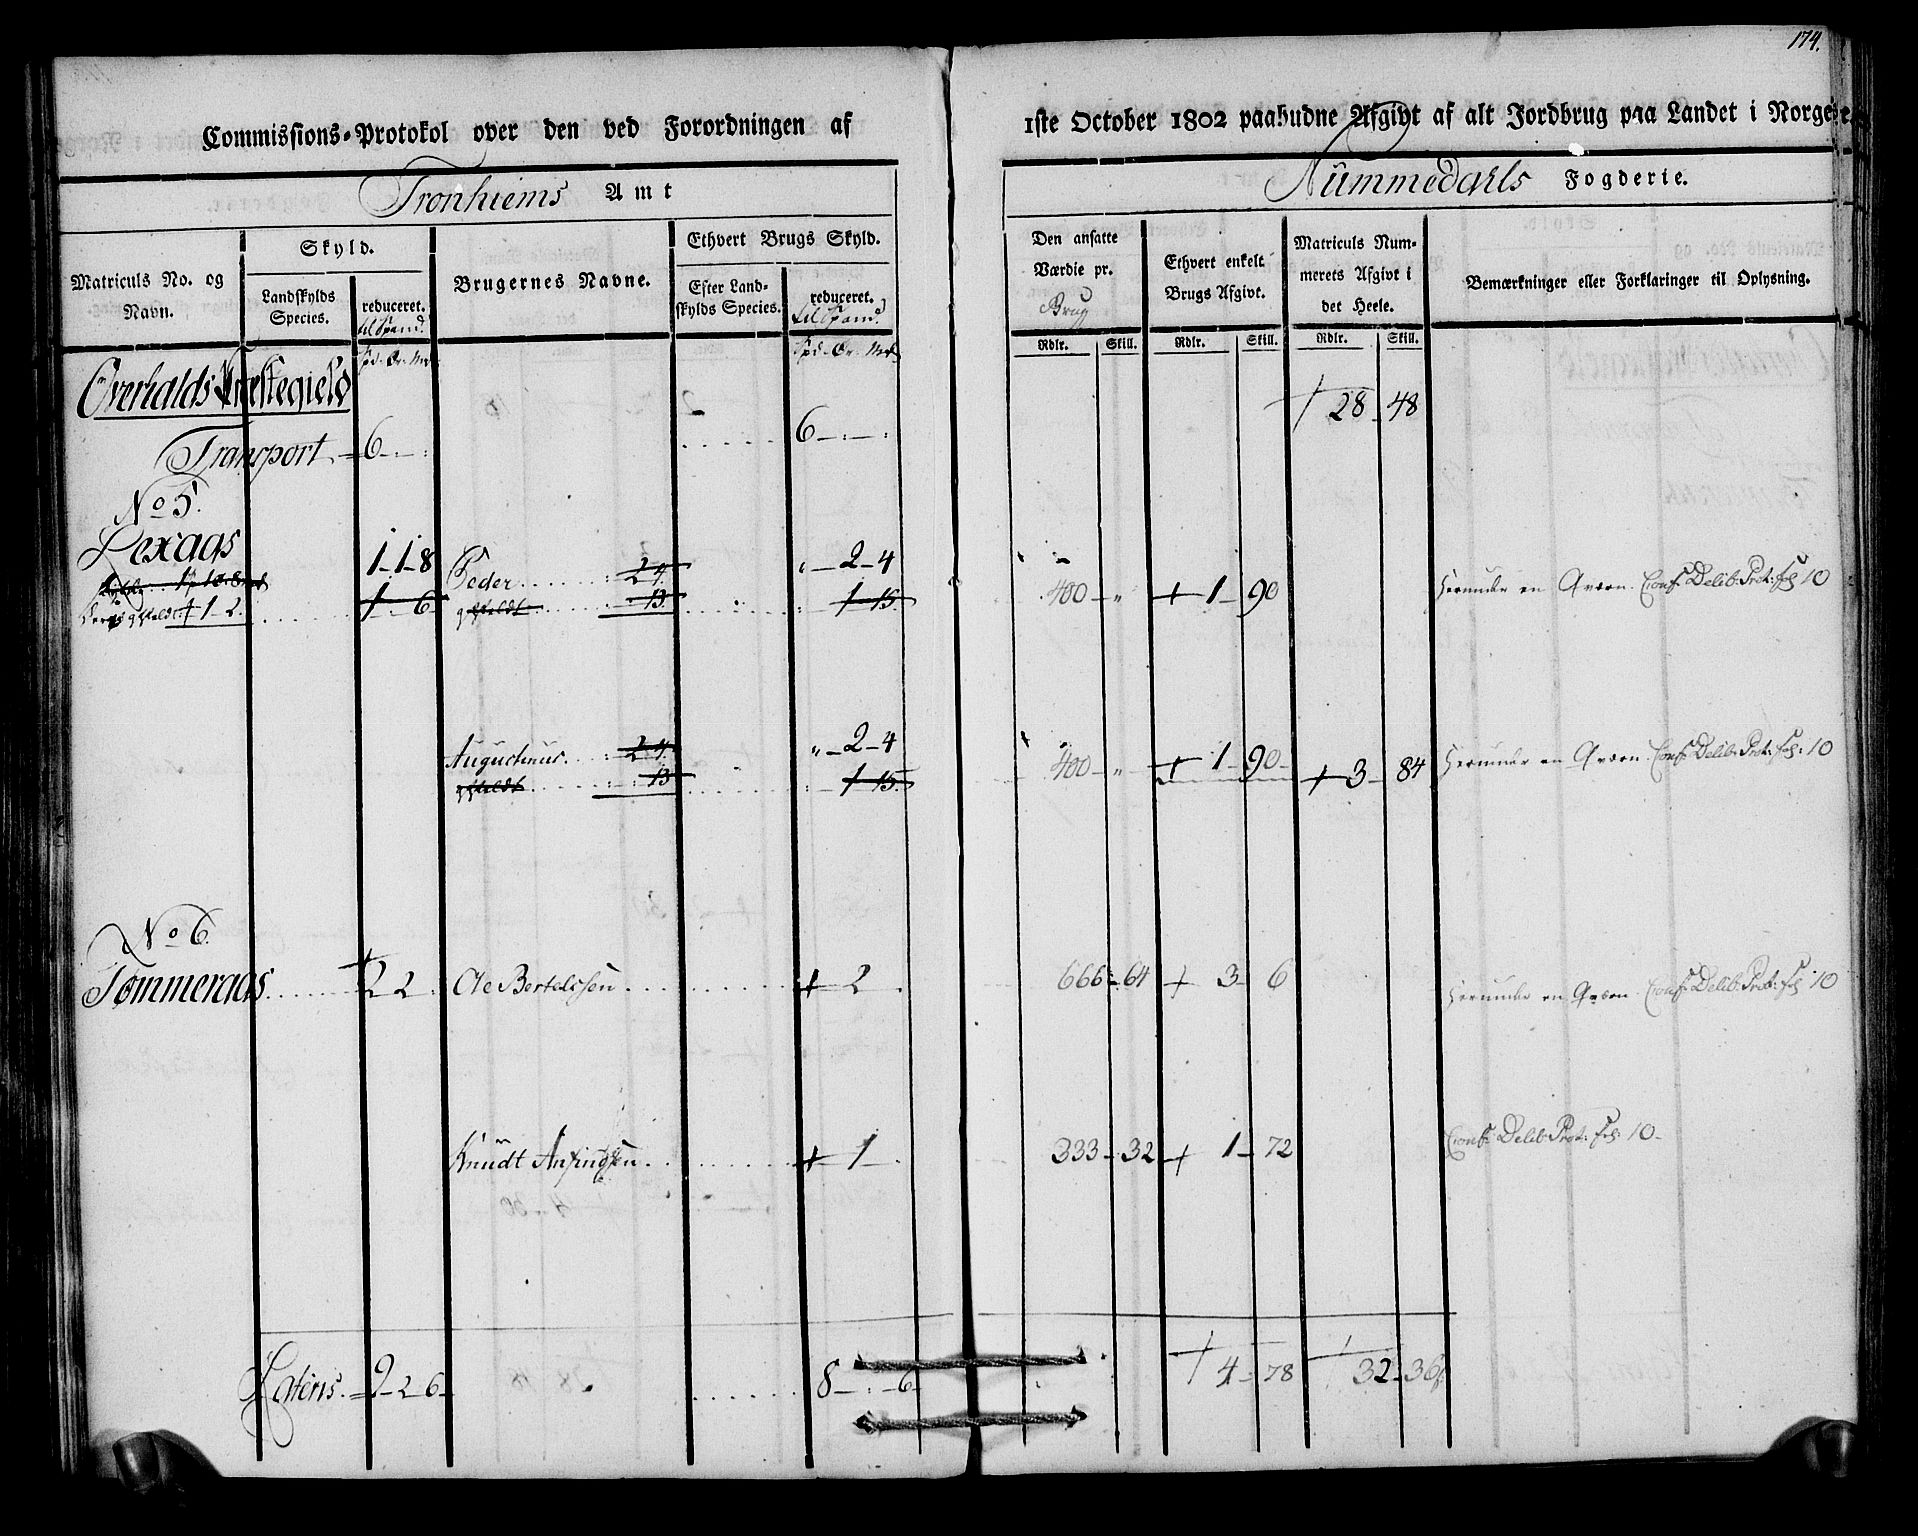 174.
Commissions-Protokol over den ved Forordningen af 1ste October 1802 paabudne Afgivt af alt Jordbrug paa Landet i Norge
Tronhiems Amt
Nummedahls Fogderie.
Matriculs No. og Navn.
Skyld.
Landskylds Species.
reduceret.
til Spand.
Spd. Ør. Mrk
Brugernes Navne.
Ethvert Brugs Skyld.
Efter Landskylds Species.
reduceret.
til Spand.
Spd. Ør. Mrk
Den ansatte Værdie pr.
Brug
Rdlr. Skill.
Ethvert enkelt Brugs Afgivt.
Rdlr. Skill.
Matriculs Nummerets Afgivt i det Heele.
Rdlr. Skill.
Bemærkninger eller Forklaringer til Oplysning.
Overhalds Præstegield
28 48
Transport 6 6
No 5.
Lexaas 1-1-8 Peder 2-4 400 " + 1 90 Herunder en Qværn. Conf. Delib. Prot: fol 10
1 6 1-15
Augustinus 2-4 400 " + 1 90 + 3 84 Herunder en Qværn. Conf. Delib. Prot: fol: 10
1-15
No 6.
Tømmeraas 2 2 Ole Bertelssen + 2 666 64 + 3 6 Herunder en Qværn. Conf. Delib: Prot: fol 10
Knudt Anfindsen + 1 333 32 + 1 72 Conf: Delib: Prot: fol: 10
Lateris 9-2-6 8 6 4 78 32 36